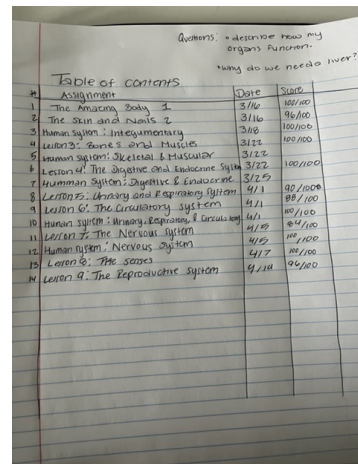 Questions: • describe how my
organs function.
• Why do we need a liver?
Table of contents
# Assignment Date Score
1 The Amazing Body 1 3/16 100/100
2 The Skin and Nails 2 3/16 96/100
3 Human system: Integumentary 3/18 100/100
4 Lesson 3: Bones and Muscles 3/22 100/100
5 Human system: Skeletal & Muscular 3/22
6 Lesson 4: The Digestive and Endocrine System 3/22 100/100
7 Humman System: Digestive & Endocrine 3/25
8 Lesson 5: Urinary and Respiratory system 4/1 90/100
9 Lesson 6: The Circulatory system 4/1 88/100
10 Human system: Urinary, Respiratory, & Circulatory 4/1 100/100
11 Lesson 7: The Nervous System 4/5 84/100
12 Human system: Nervous system 4/5 100/100
13 Lesson 8: The senses 4/7 100/100
14 Lesson 9: The Reproductive system 4/14 96/100